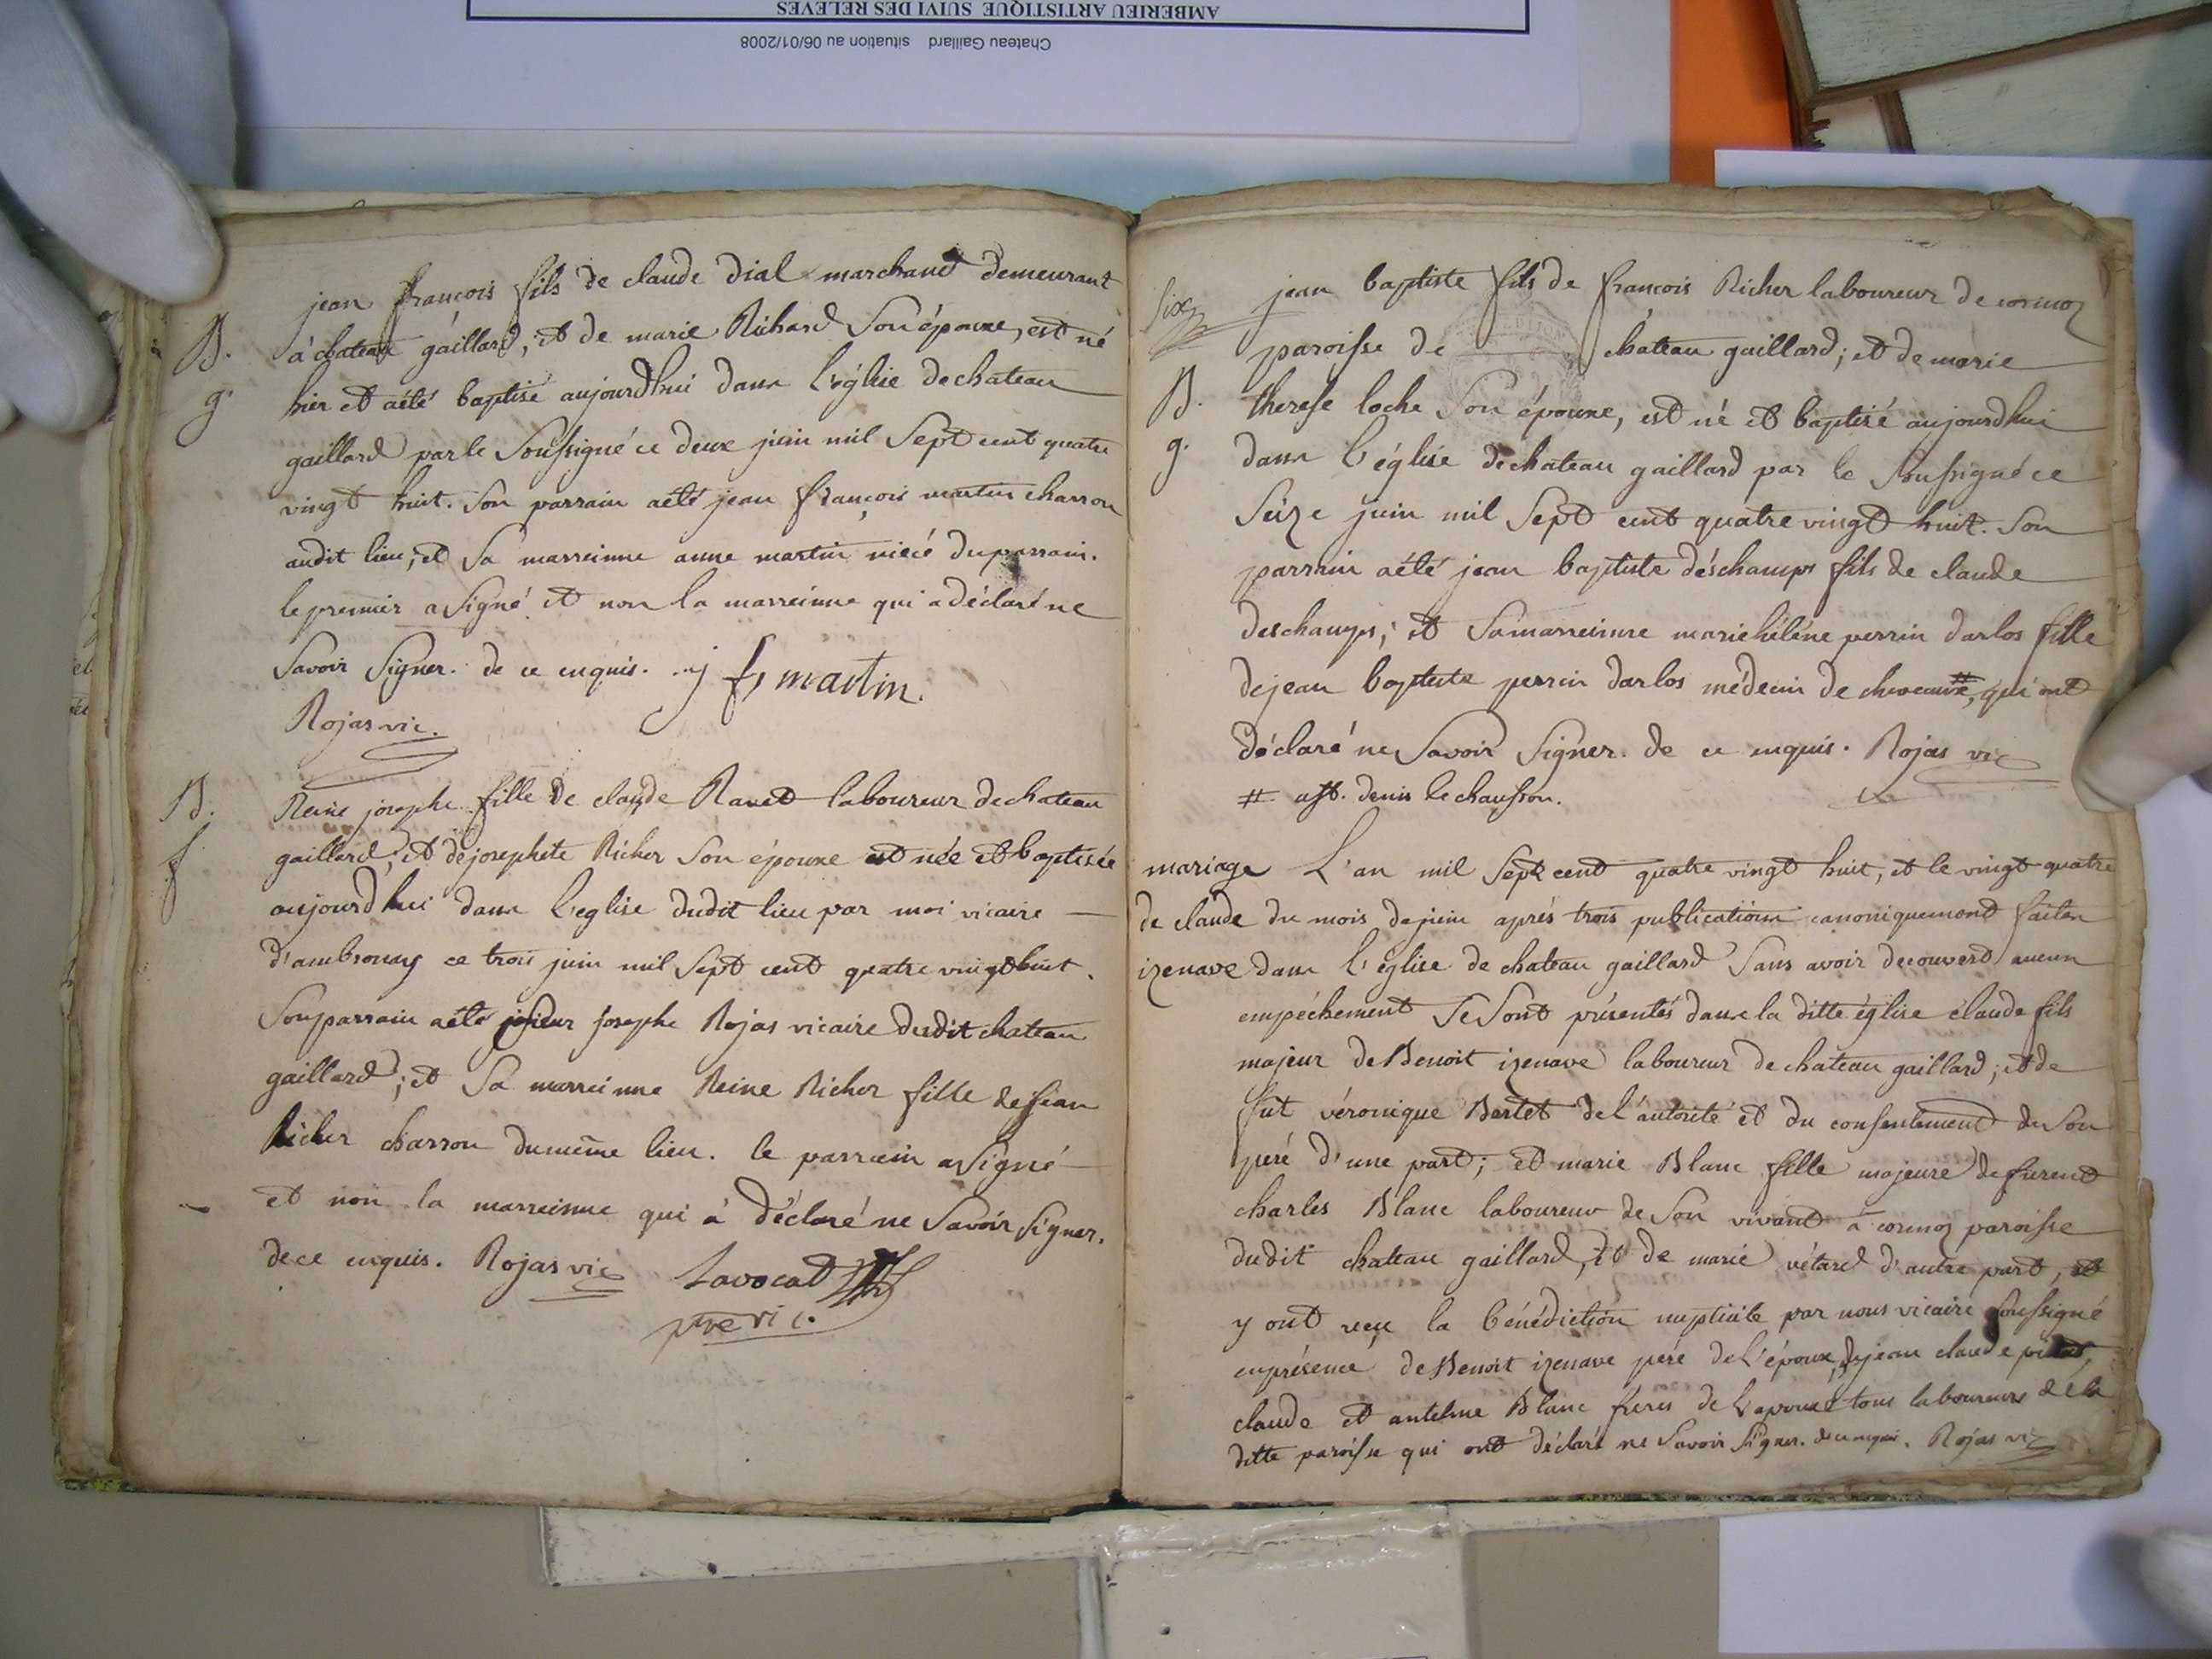 AMBERIEU ARTISTIQUE SUIVI DES RELEVES
Chateau Gaillard situation au 06/01/2008
jean françois fils de claude Dial marchand demeurant
B. à chateau gaillard, et de marie Richard son épouxe, est né
g. hier et aété baptisé aujourdhui dans l'église dechateau
gaillard par le soussigné ce deux juin mil sept cent quatre
vingt huit. son parrain aété jean françois martin charron
audit lieu; et sa marreinne anne martin niéce duparrain.
le premier a signé et non la marreinne qui adéclaré ne
savoir signer. de ce enquis. j f martin.
Rojas vic.
B. Reine josephe fille de claude Ravet laboureur dechateau
f gaillard, et dejosephete Richer son épouxe est née et baptisée
aujourdhui dans l'eglise dudit lieu par moi vicaire
d'ambronay ce trois juin mil sept cent quatre vingt huit.
son parrain aété josephe Rojas vicaire dudit chateau
gaillard; et sa marreinne Reine Richer fille de jean
Richer charron dumême lieu. le parrain a signé
et non la marreinne qui à déclaré ne savoir signer.
dece enquis. Rojas vic Lavocat
pre vic.
six
jean baptiste fils de françois Richer laboureur de cormoz
paroisse de chateau gaillard; et de marie
B. therese loche son épouxe, est né et baptisé aujourdhui
g. dans l'église dechateau gaillard par le soussigné ce
seize juin mil sept cent quatre vingt huit. son
parrain aété jean baptiste déschamps fils de claude
deschamps; et samarreinne mariehéléne perrin darlos fille
dejean baptiste perrin darlos médecin de cheveaux #, qui ont
déclaré ne savoir signer. de ce enquis. Rojas vic
# a st. denis le chausson.
mariage L'an mil sept cent quatre vingt huit, et le vingt quatre
de claude du mois dejuin aprés trois publications canoniquement faites
izenave dans l'église de chateau gaillard sans avoir decouvert aucun
empéchement se sont présentés dans la ditte église claude fils
majeur de Benoit izenave laboureur de chateau gaillard; et de
fut véronique Bertet de l'autorité et du consentement de son
peré d'une part; et marie Blanc fille majeure de furent
charles Blanc laboureur de son vivant à cormoz paroisse
dudit chateau gaillard, et de marie vétard d'autre part, et
y ont reçu la bénédiction nuptiale par nous vicaire soussigné
enprésence de Benoit izenave peré de l'époux, de jean claude
claude et antelme Blanc freres de l'epouxe tous laboureurs de la
ditte paroisse qui ont déclaré ne savoir signer. de ce enquis. Rojas vic